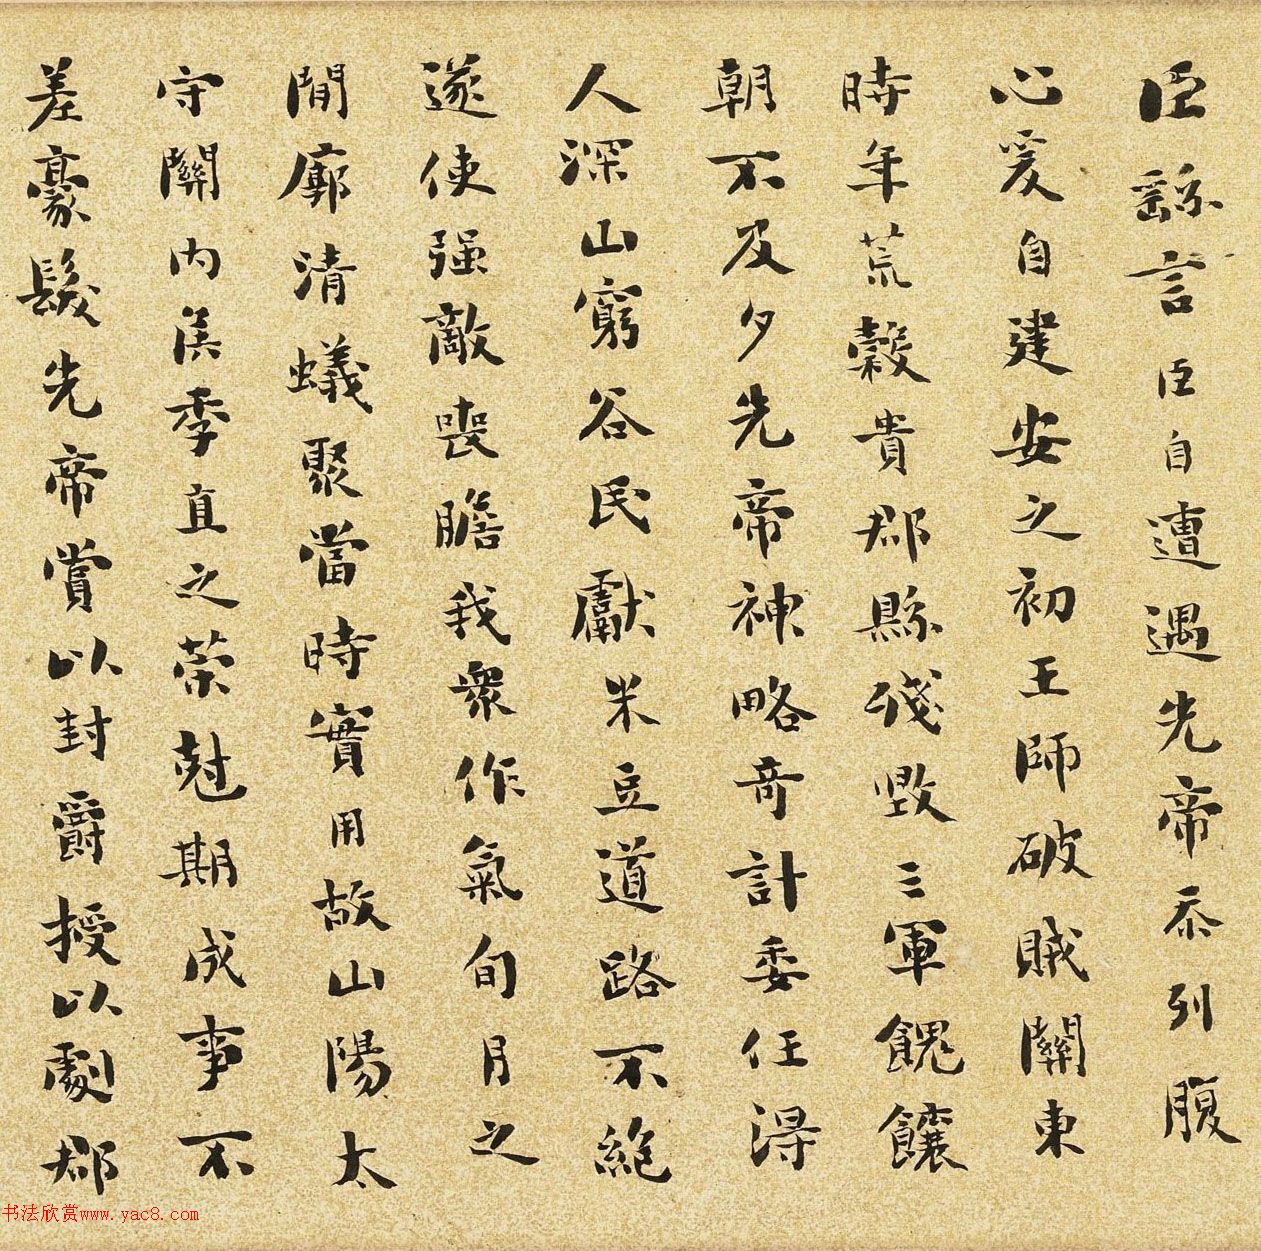 臣繇言臣自遭遇先帝忝列腹
心爰自建安之初王師破賊關東
時年荒穀貴郡縣殘毀三軍餽饟
朝不及夕先帝神略奇計委任得
人深山窮谷民獻米豆道路不絕
遂使强敵喪膽我衆作氣旬月之
間廓清蟻聚當時實用故山陽太
守關內侯季直之策尅期成事不
差豪髮先帝賞以封爵授以劇郡
书法欣赏www.yac8.com